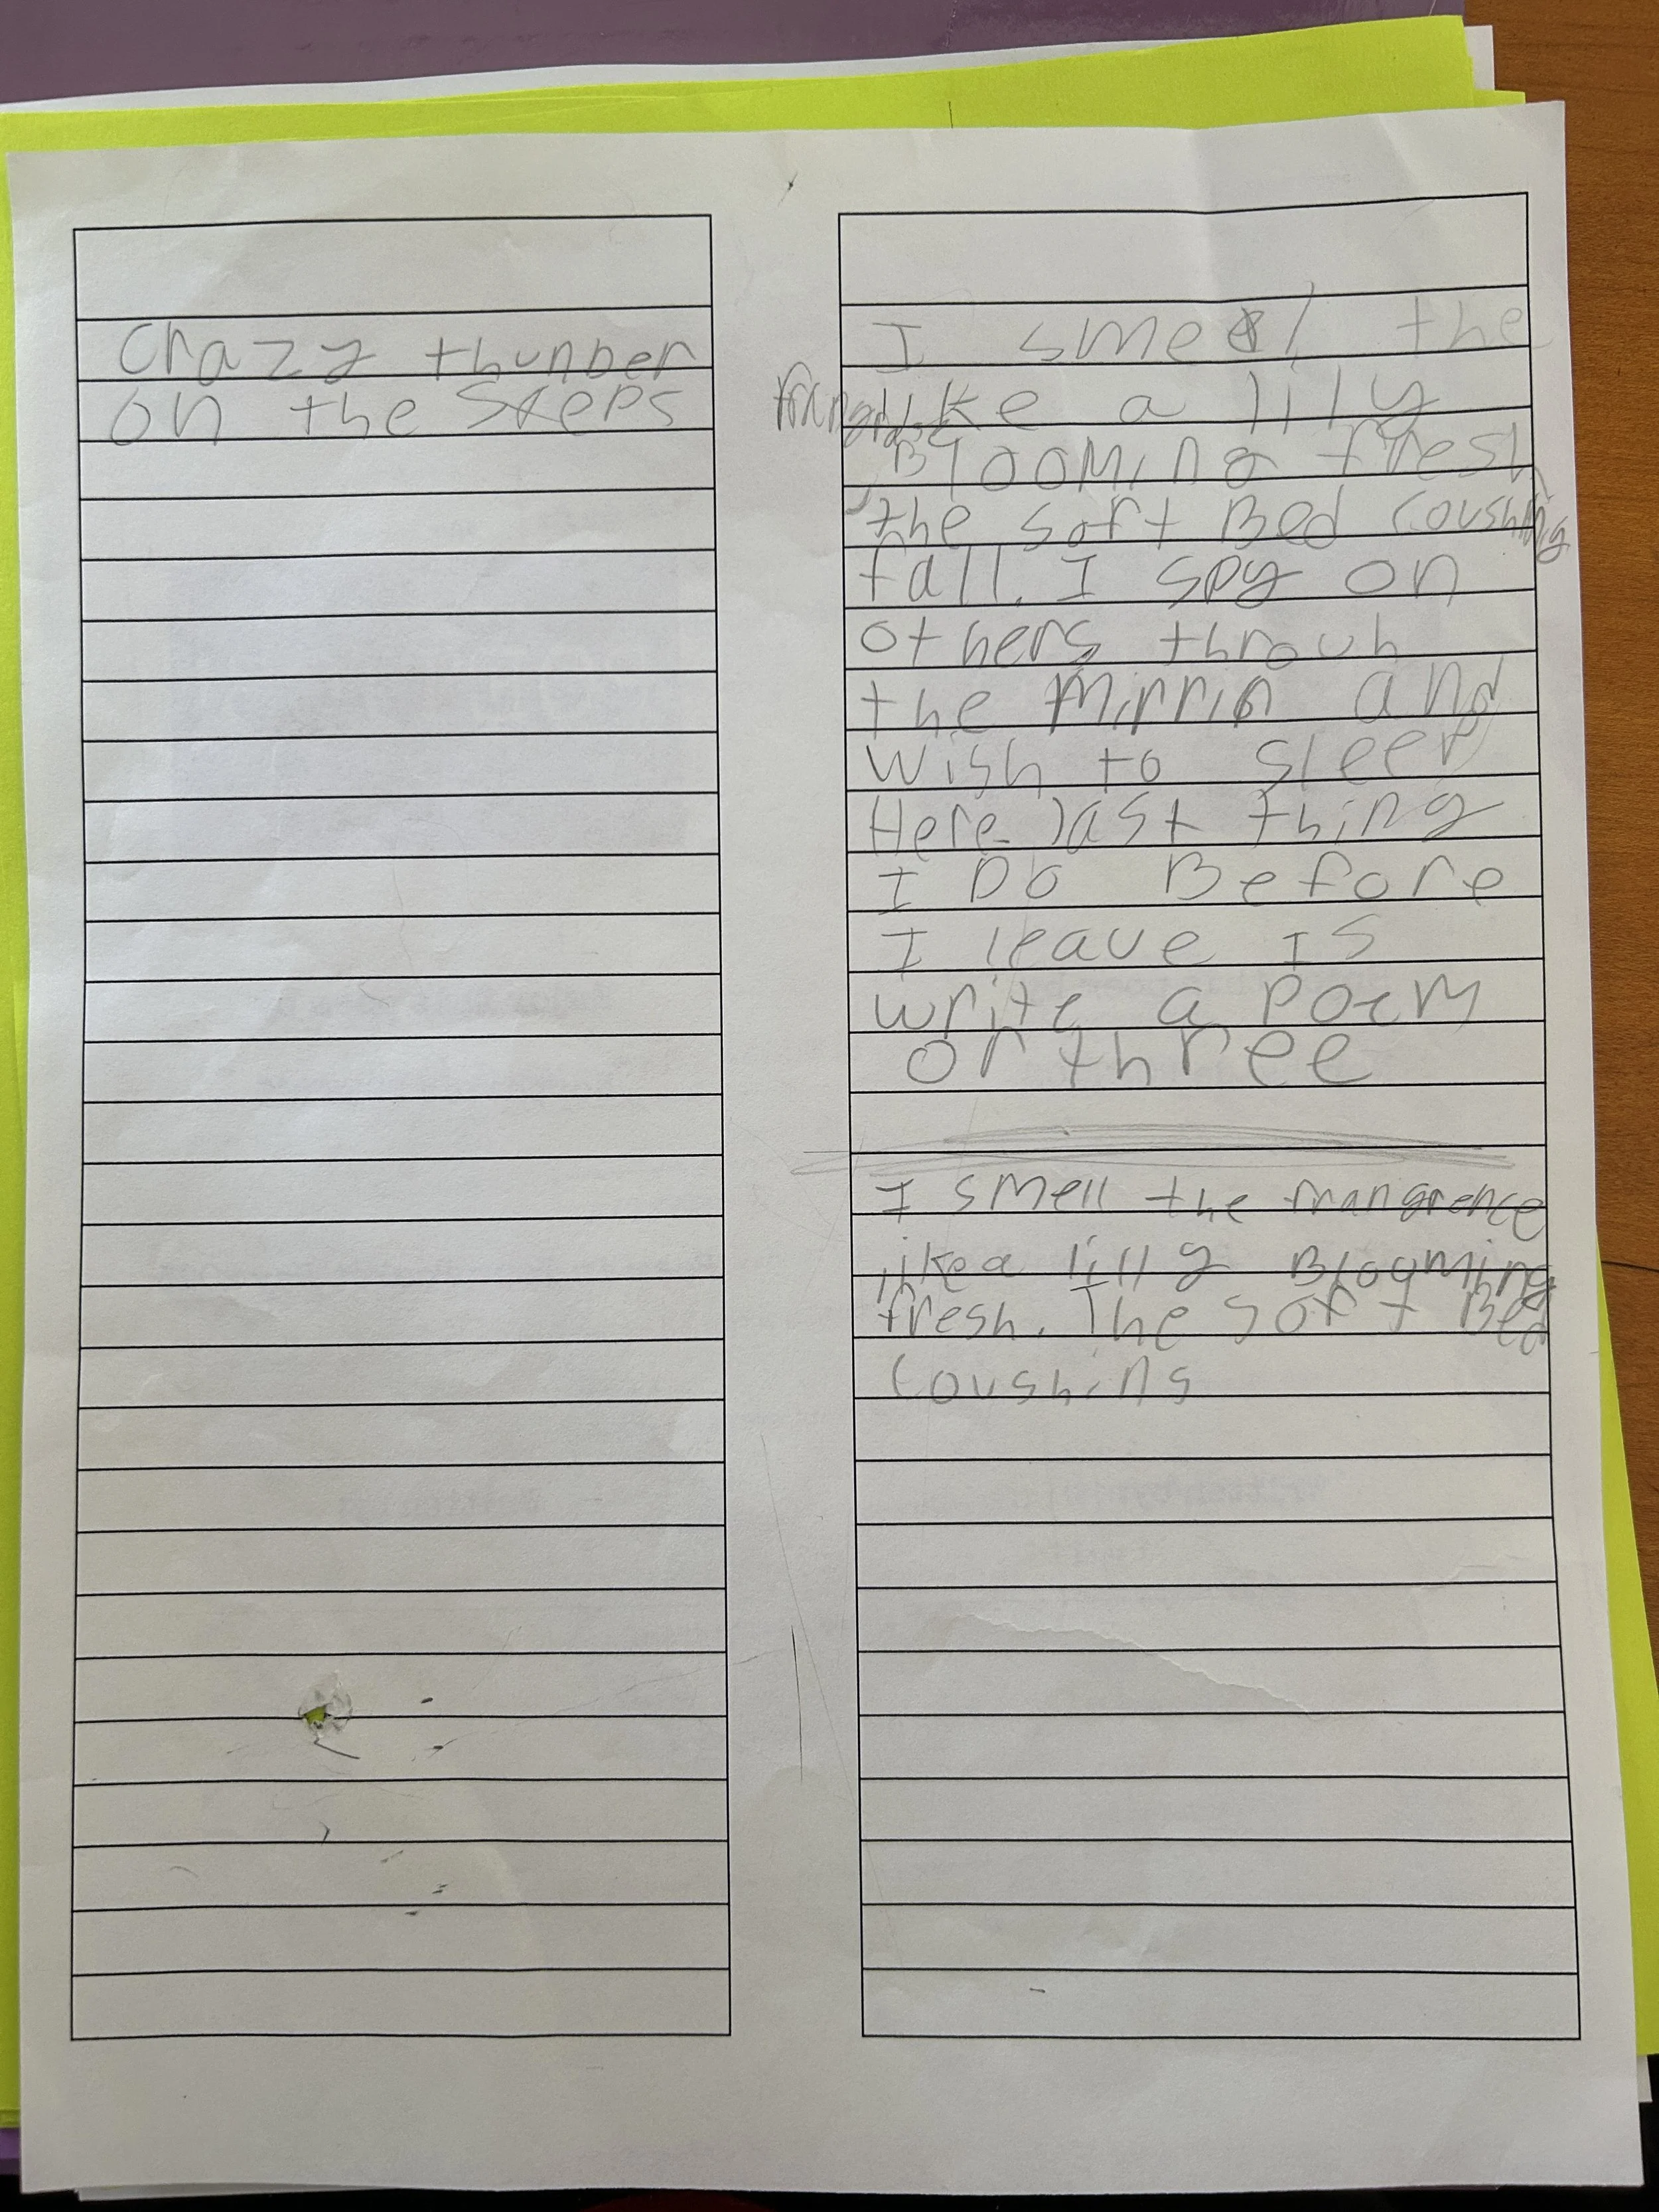 Crazy thunder
on the steeps
I smell the
frangranse like a lily
Blooming fresh
the soft Bed coushing
fall. I spy on
others throuh
the Mirrir and
wish to sleep
Here last thing
I Do Before
I leave is
write a poem
or three
I smell the frangrence
like a lilly Blooming
fresh. The soft Bed
coushins